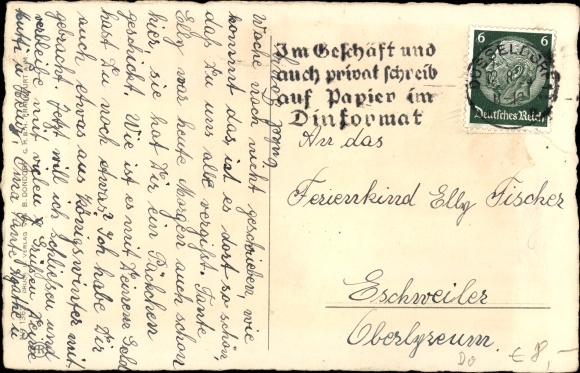 Woche noch nicht geschrieben, wie
kommt das, ist es dort so schön,
das Du uns alle vergißt. Tante
Elly war heute Morgen auch schon
hier, sie hat Dir ein Päckchen
geschickt. Wie ist es mit Deinem Geld
hast Du noch etwas? Ich habe Dir
auch etwas aus Königswinter mit
gebracht. Jetzt will ich schließen und
verbleibe mit vielen Grüßen Deine
Mutti u. Omi, Tante Agathe u
Im Geschäft und
auch privat schreib
auf Papier im
Dinformat
DUESSELDORF
6 6
Deutsches Reich
An das
Ferienkind Elly Fischer
Eschweiler
Oberlyzeum.
Do € 8,–